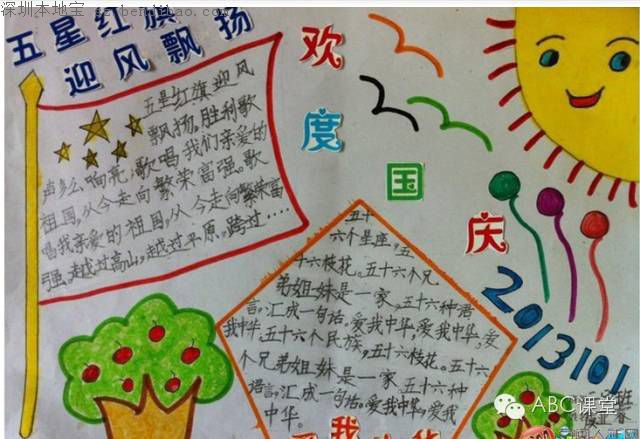 深圳本地宝
五星红旗
迎风飘扬
欢度国庆
五星红旗迎风
飘扬,胜利歌
声多么响亮;歌唱我们亲爱的
祖国,从今走向繁荣富强。歌
唱我亲爱的祖国,从今走向繁荣富
强。越过高山,越过平原。跨过……
五十
六个星座,五
十六枝花。五十六个兄
弟姐妹是一家。五十六种语
言,汇成一句话。爱我中华,爱我中华,爱
我中华,五十六个民族,五十六枝花。五十六
个兄弟姐妹是一家,五十六种
语言,汇成一句话。爱我中华,爱我
中华。
20131001
ABC课堂